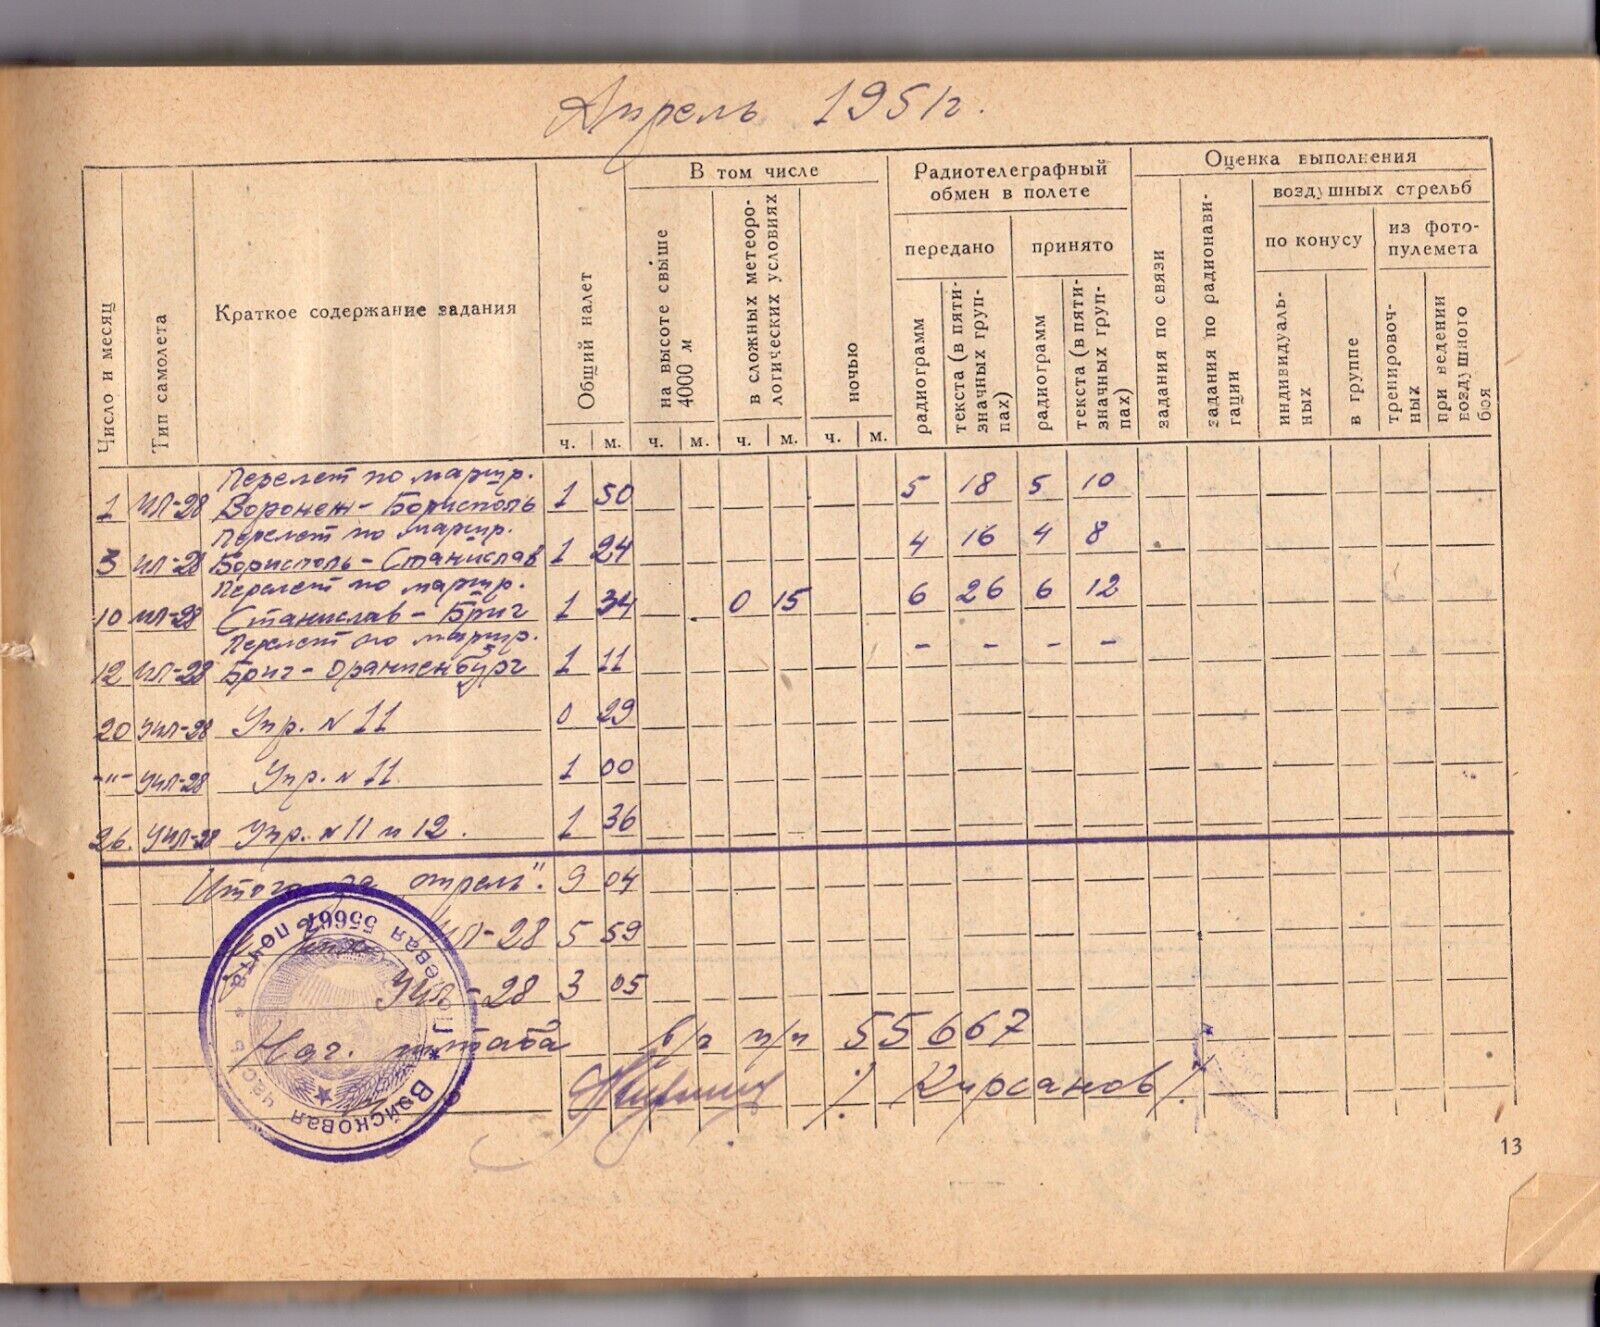 Апрель 1951г.
Число и месяц
Тип самолета
Краткое содержание задания
Общий налет
В том числе
на высоте свыше 4000 м
в сложных метеоро-
логических условиях
ночью
Радиотелеграфный
обмен в полете
передано
принято
радиограмм
текста (в пяти-
значных груп-
пах)
радиограмм
текста (в пяти-
значных груп-
пах)
Оценка выполнения
задания по связи
задания по радионави-
гации
воздушных стрельб
по конусу
из фото-
пулемета
индивидуаль-
ных
в группе
тренировоч-
ных
при ведении
воздушного
боя
ч. м. ч. м. ч. м. ч. м.
Перелет по маршр.
1 Ил-28 Воронеж - Борисполь 1 50 5 18 5 10
Перелет по маршр.
3 Ил-28 Борисполь - Станислав 1 24 4 16 4 8
Перелет по маршр.
10 Ил-28 Станислав - Бриг 1 34 0 15 6 26 6 12
Перелет по маршр.
12 Ил-28 Бриг - Ораниенбург 1 11 - - - -
20 УИЛ-28 Упр. N 11 0 29
-"- УИЛ-28 Упр. N 11. 1 00
26. УИЛ-28 Упр. N 11 и 12. 1 36
Итого за апрель". 9 04
Ил-28 5 59
УИЛ-28 3 05
Нач. штаба в/ч п/п 55667
/Кирсанов/.
Войсковая часть
Полевая почта 55667
13